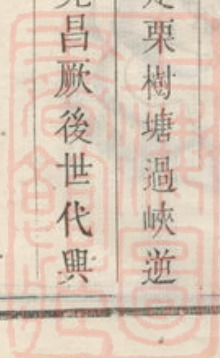 栗樹塘過峽逆
昌厥後世代興